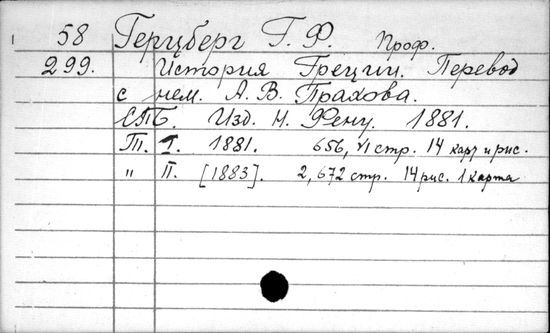 58 Герцберг Г. Ф. Проф.
299. История Греции. Перевод
с нем. А. В. Прахова.
СПБ. Изд. Н. Фену. 1881.
Т. I. 1881. 656, VI стр. 14 карт и рис.
" II. [1883]. 2, 672 стр. 14 рис. 1 карта